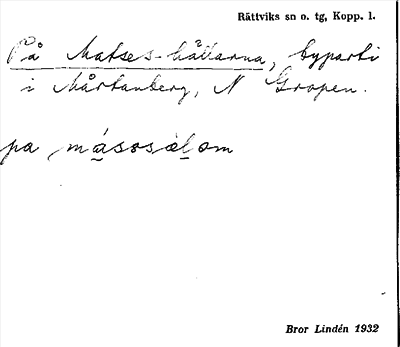 Rättviks sn o. tg, Kopp. l.
På Matses-hållarna, byparti
i Mårtanberg, N Gropen.
pa másosàlom
Bror Lindén 1932